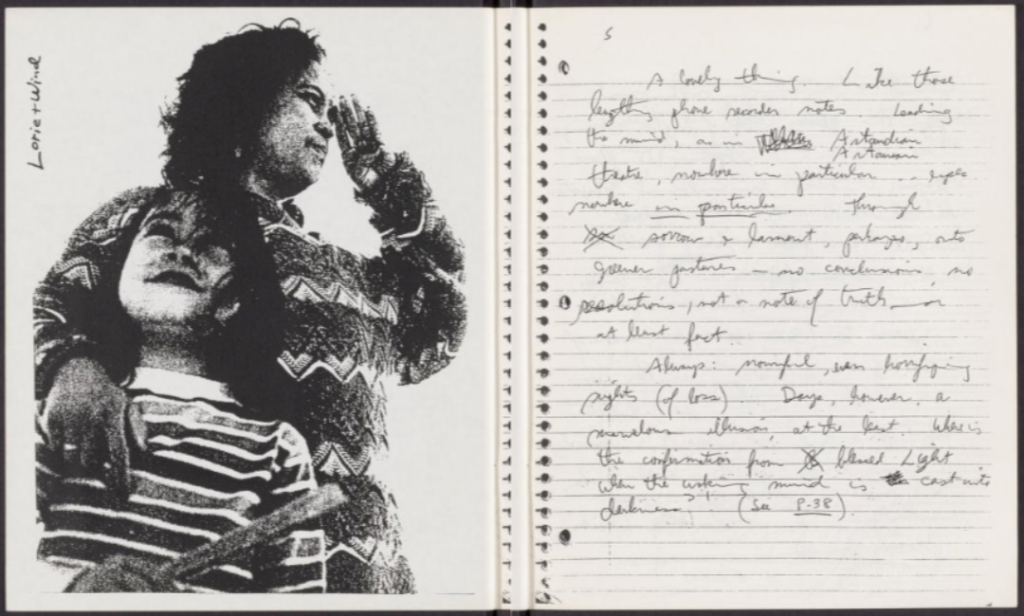 Lorie + Wind
5
A lovely thing. Like those
lengthy phone recorder notes. Leading
the mind, as in Artaudian
Artonian
theatre, nowhere in particular
nowhere in particular. Through
sorrow & lament, perhaps, onto
greener pastures — no conclusions no
resolutions, not a note of truth — or
at least fact.
Always: mournful, even horrifying
nights (of loss) Days, however, a
marvelous illusion, at the least. Where is
the confirmation from blessed Light
when the waking mind is cast into
darkness? (See P-38)